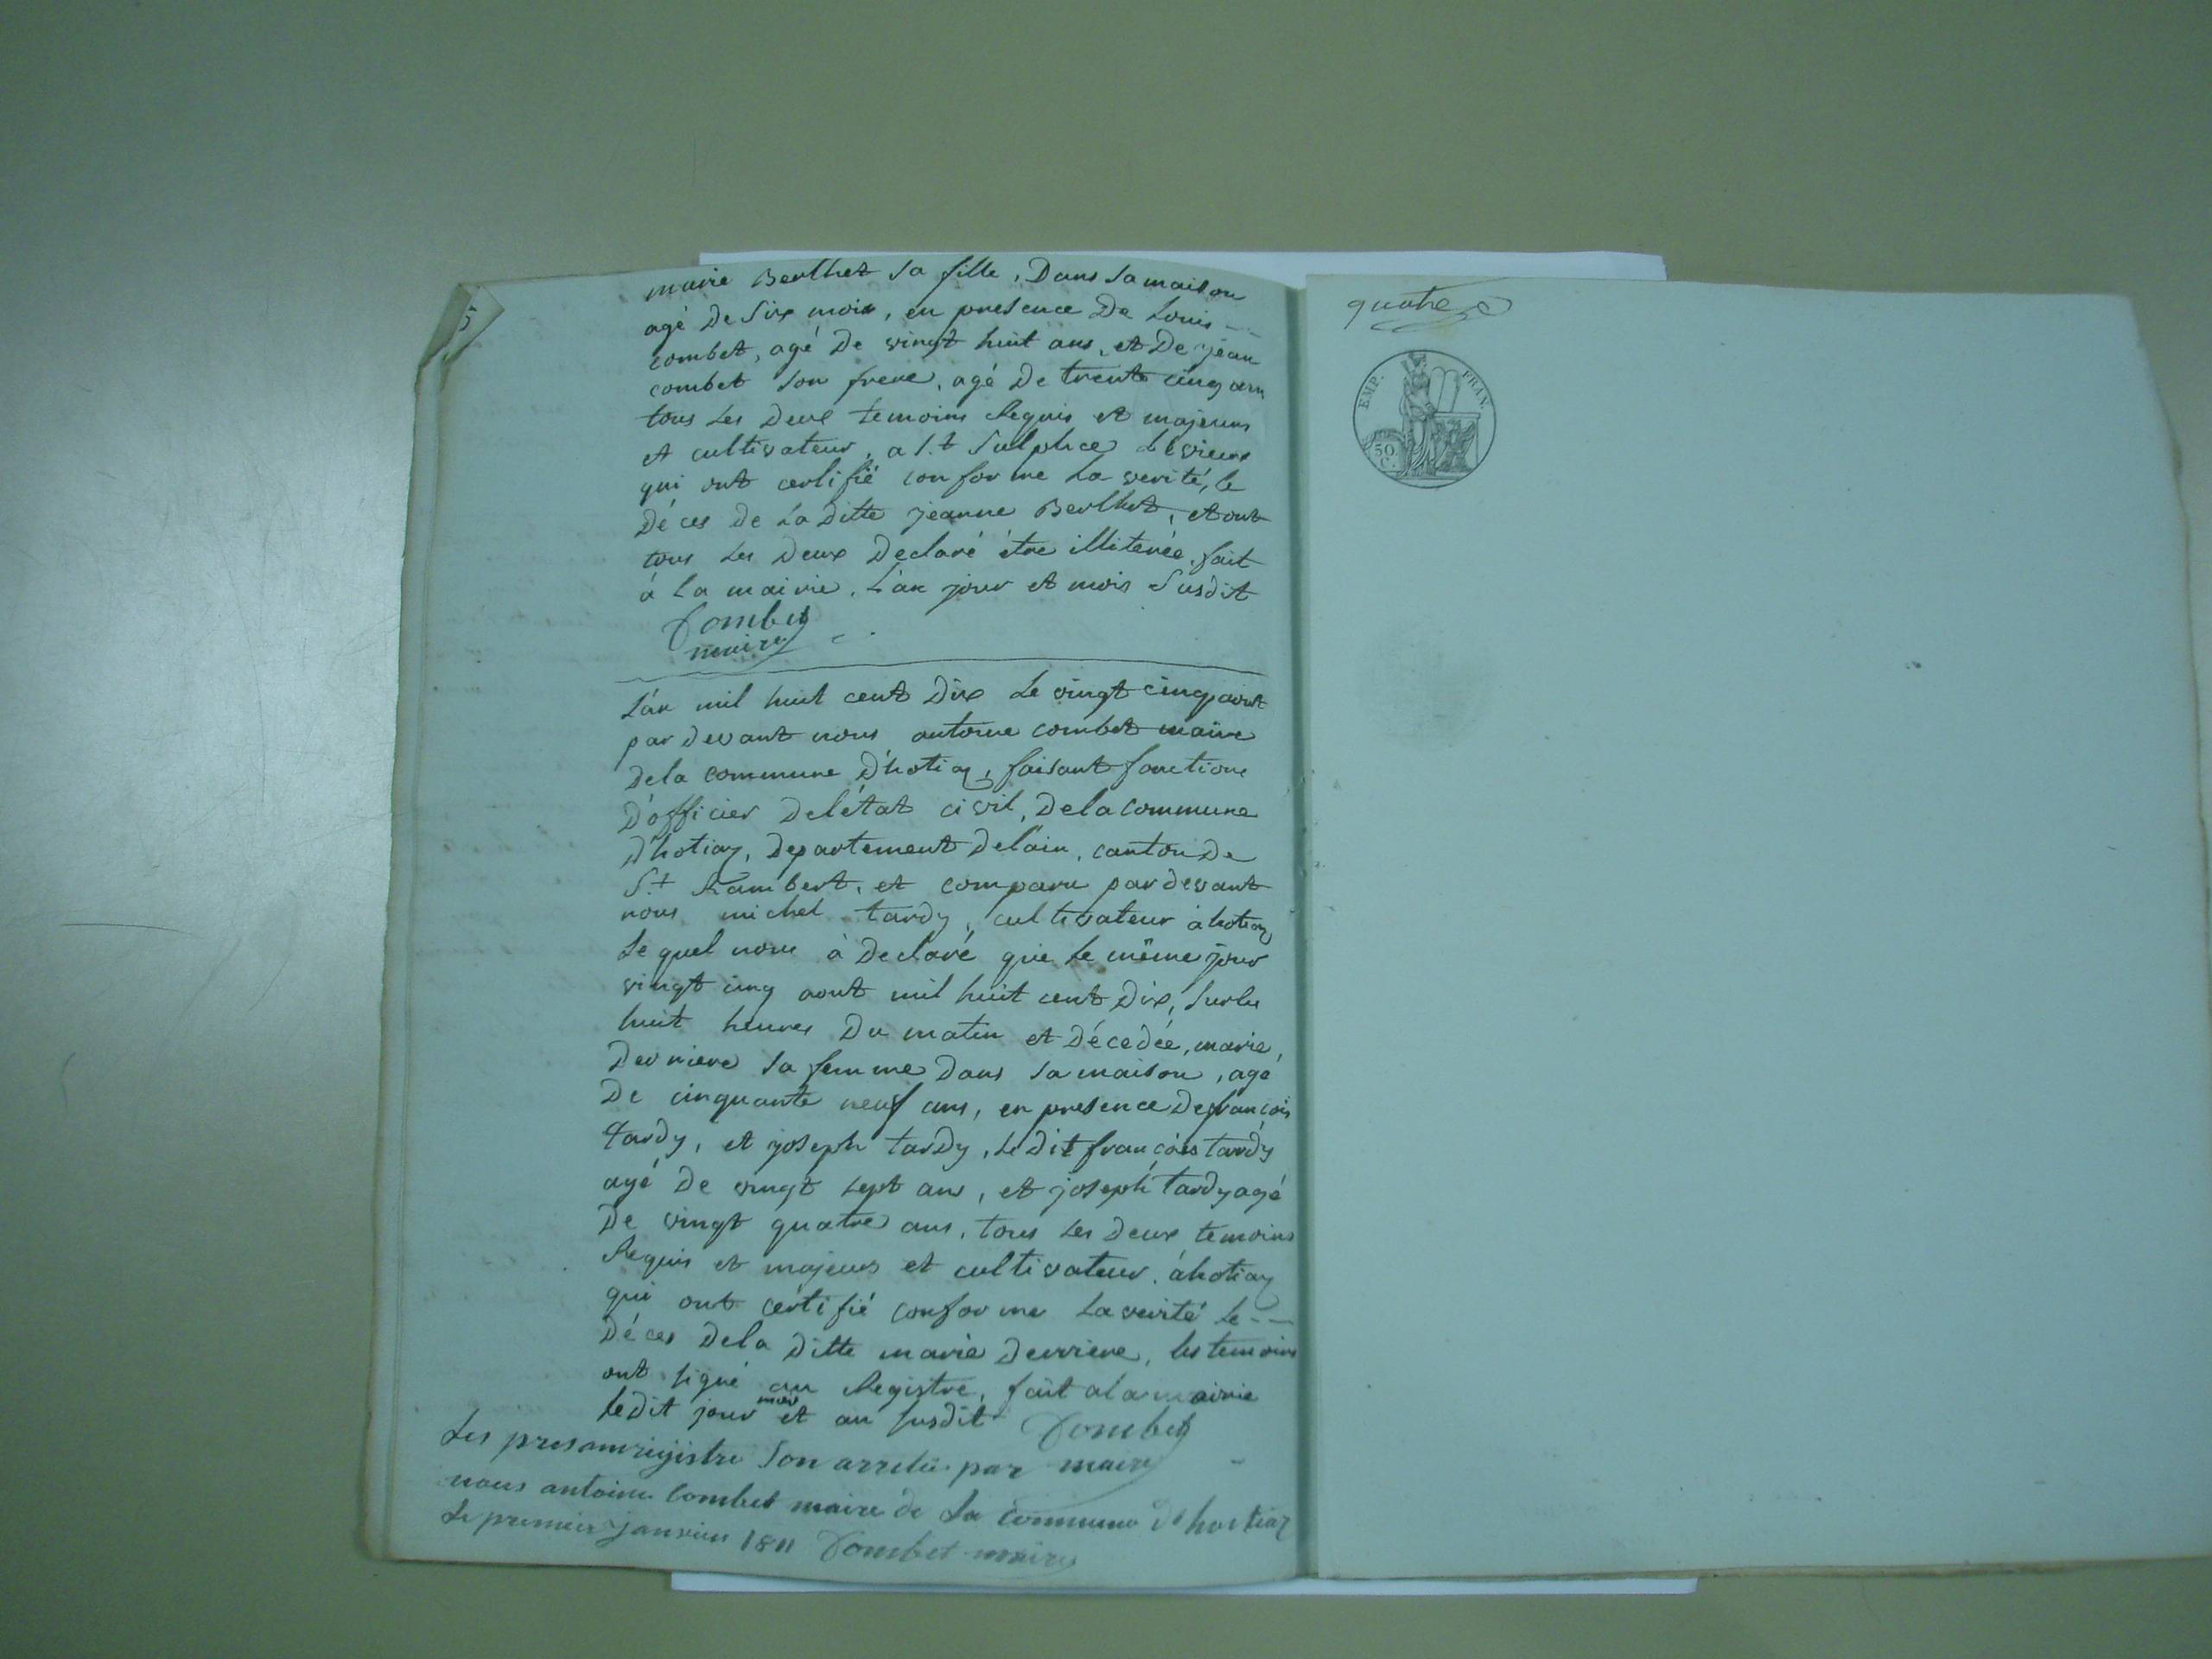 5
marie Berthet sa fille, Dans sa maison
agé De Six mois, en presence De Louis --
combet, agé De vingt huit ans, et De jean
combet son frere, agé De trente cinq ans
tous Les Deux temoins Requis et majeurs
et cultivateur, a S.t Sulplice
qui ont certifié conforme La verité, le
Déces De La Ditte jeanne Berthet, et ont
tous Les Deux Declaré être illiterée, fait
à La mairie, L'an jour et mois Susdit
Combet
maire
L'an mil huit cent Dix Le vingt cinq aout
par devant nous antoine combet maire
De la commune D'hotiaz, faisant fonctions
D'officier De l'état civil, De la commune
D'hotiaz, Departement De l'ain, canton De
S.t Rambert, et comparu par devant
nous michel tardy, cultivateur à hotiaz
Le quel nous à Declaré que Le même jour
vingt cinq aout mil huit cent Dix, Sur les
huit heures Du matin et Décedée, marie,
Derriere Sa femme Dans Sa maison, agé
De cinquante neuf ans, en presence De françois
tardy, et joseph tardy, Le Dit françois tardy
agé De vingt sept ans, et joseph tardy agé
De vingt quatre ans, tous Les Deux temoins
Requis et majeurs et cultivateur, à hotiaz
qui ont certifié conforme La verité Le --
Déces De la Ditte marie Derriere, les temoins
ont signé au Registre, fait a la mairie
Ledit jour mois et an susdit Combet
Les presanregistre Son arreteé par maire
nous antoine Combet maire de La Commune d'hostiaz
Le premier janvier 1811 Combet maire
quatre
EMP. FRAN.
50
C.